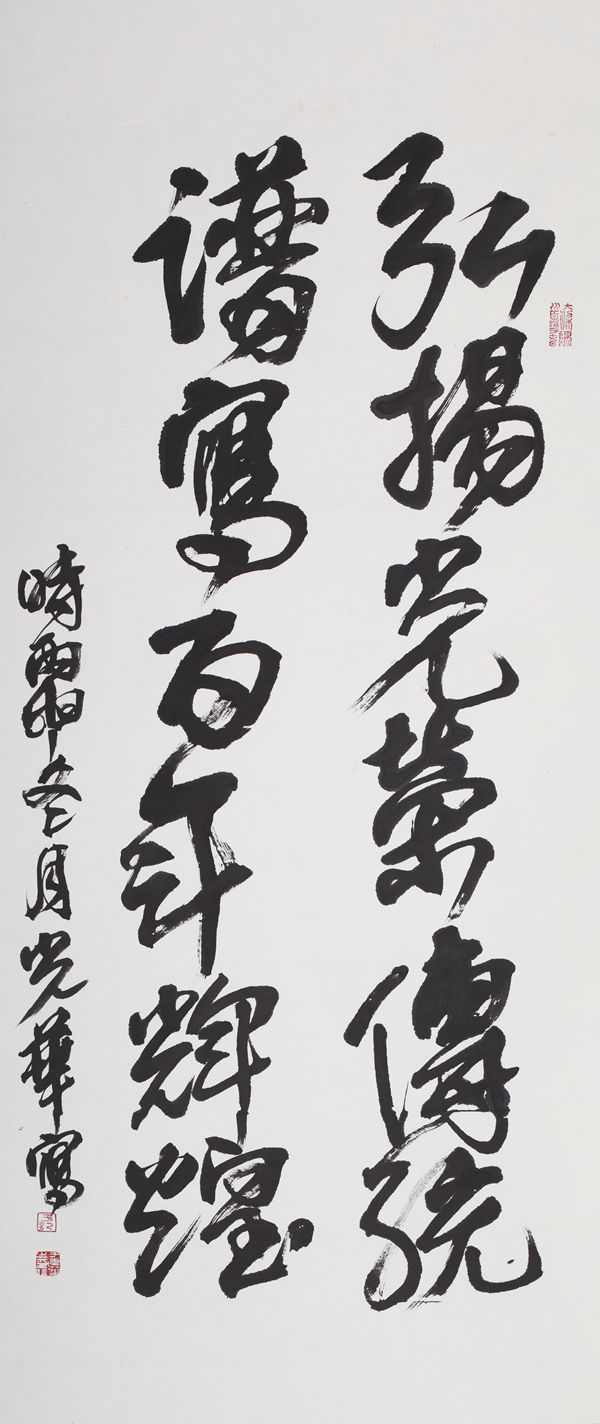 弘揚光榮傳統
譜寫百年輝煌
時丙申冬月光華寫